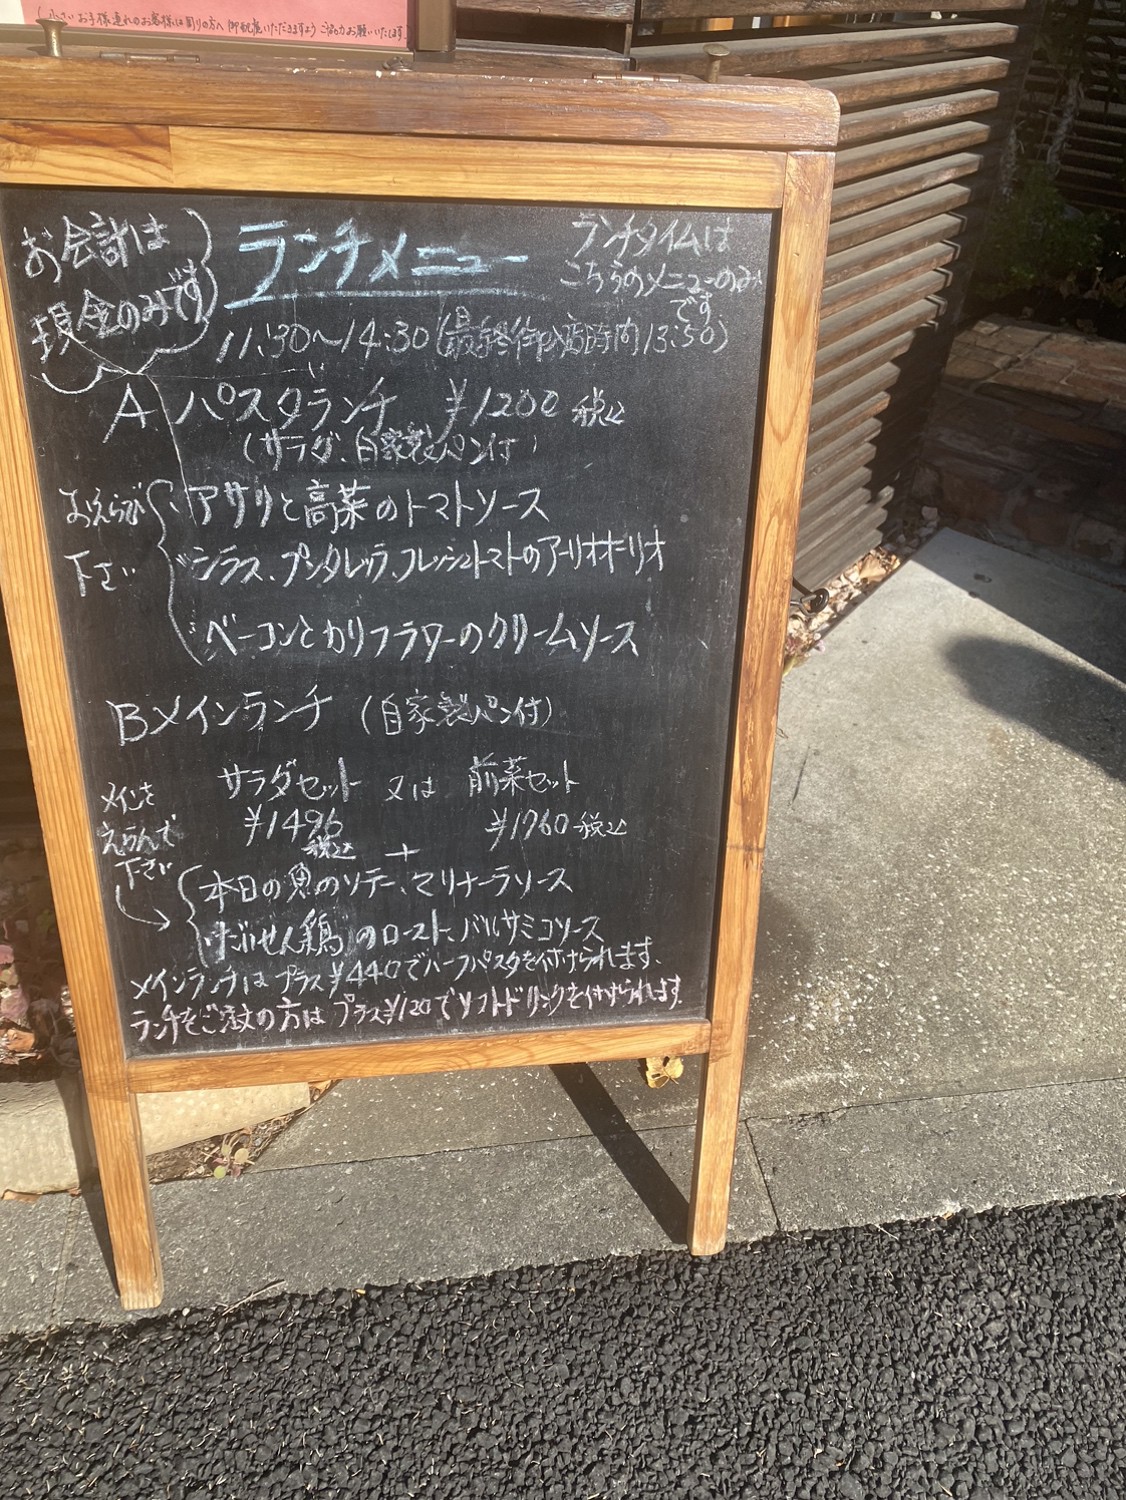 (小さいお子様連れのお客様は周りの方へ御配慮いただきますようご協力お願いいたします
お会計は
現金のみです
ランチメニュー
ランチタイムは
こちらのメニューのみ
です
11:30〜14:30(最終御入店時間13:50)
A パスタランチ ¥1200 税込
(サラダ、自家製パン付)
おえらび
下さい
アサリと高菜のトマトソース
シラス、プンタレッラ、フレッシュトマトのアーリオオーリオ
ベーコンとカリフラワーのクリームソース
Bメインランチ (自家製パン付)
サラダセット 又は 前菜セット
¥1496 税込 ¥1760 税込
+
メインを
えらんで
下さい
本日の魚のソテー、マリナーラソース
けだいせん鶏のロースト、バルサミコソース
メインランチはプラス¥440でハーフパスタを付けられます、
ランチをご注文の方はプラス¥120でソフトドリンクを付けられます。